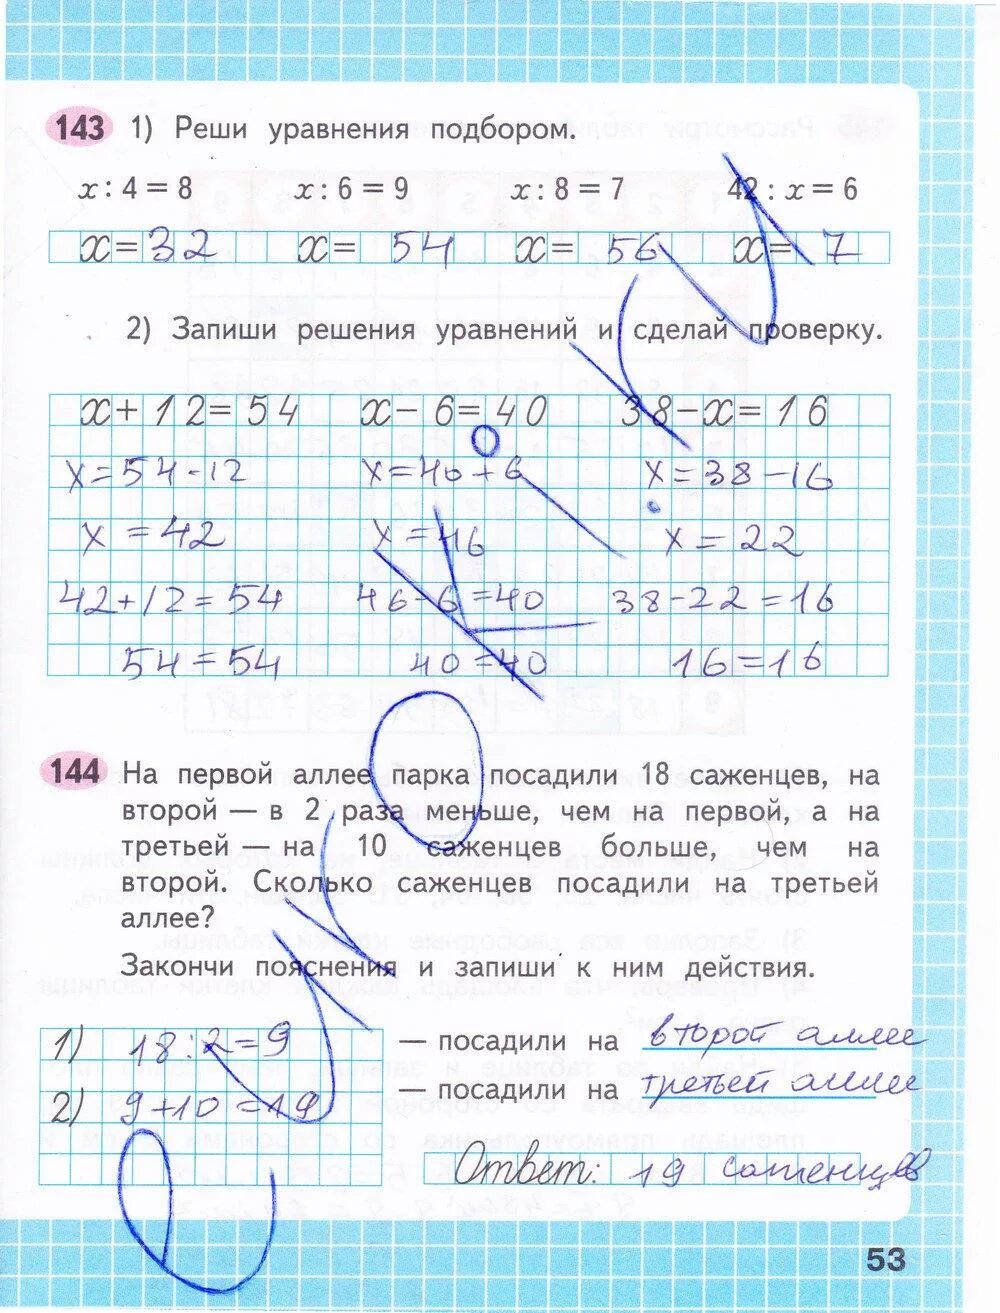 143 1) Реши уравнения подбором.
x : 4 = 8 x : 6 = 9 x : 8 = 7 42 : x = 6
x = 32 x = 54 x = 56 x = 7
2) Запиши решения уравнений и сделай проверку.
x + 12 = 54 x − 6 = 40 38 − x = 16
x = 54 - 12 x = 40 + 6 x = 38 - 16
x = 42 x = 46 x = 22
42 + 12 = 54 46 - 6 = 40 38 - 22 = 16
54 = 54 40 = 40 16 = 16
144 На первой аллее парка посадили 18 саженцев, на
второй — в 2 раза меньше, чем на первой, а на
третьей — на 10 саженцев больше, чем на
второй. Сколько саженцев посадили на третьей
аллее?
Закончи пояснения и запиши к ним действия.
1) 18 : 2 = 9 — посадили на второй аллее
2) 9 + 10 = 19 — посадили на третьей аллее
Ответ: 19 саженцев
53